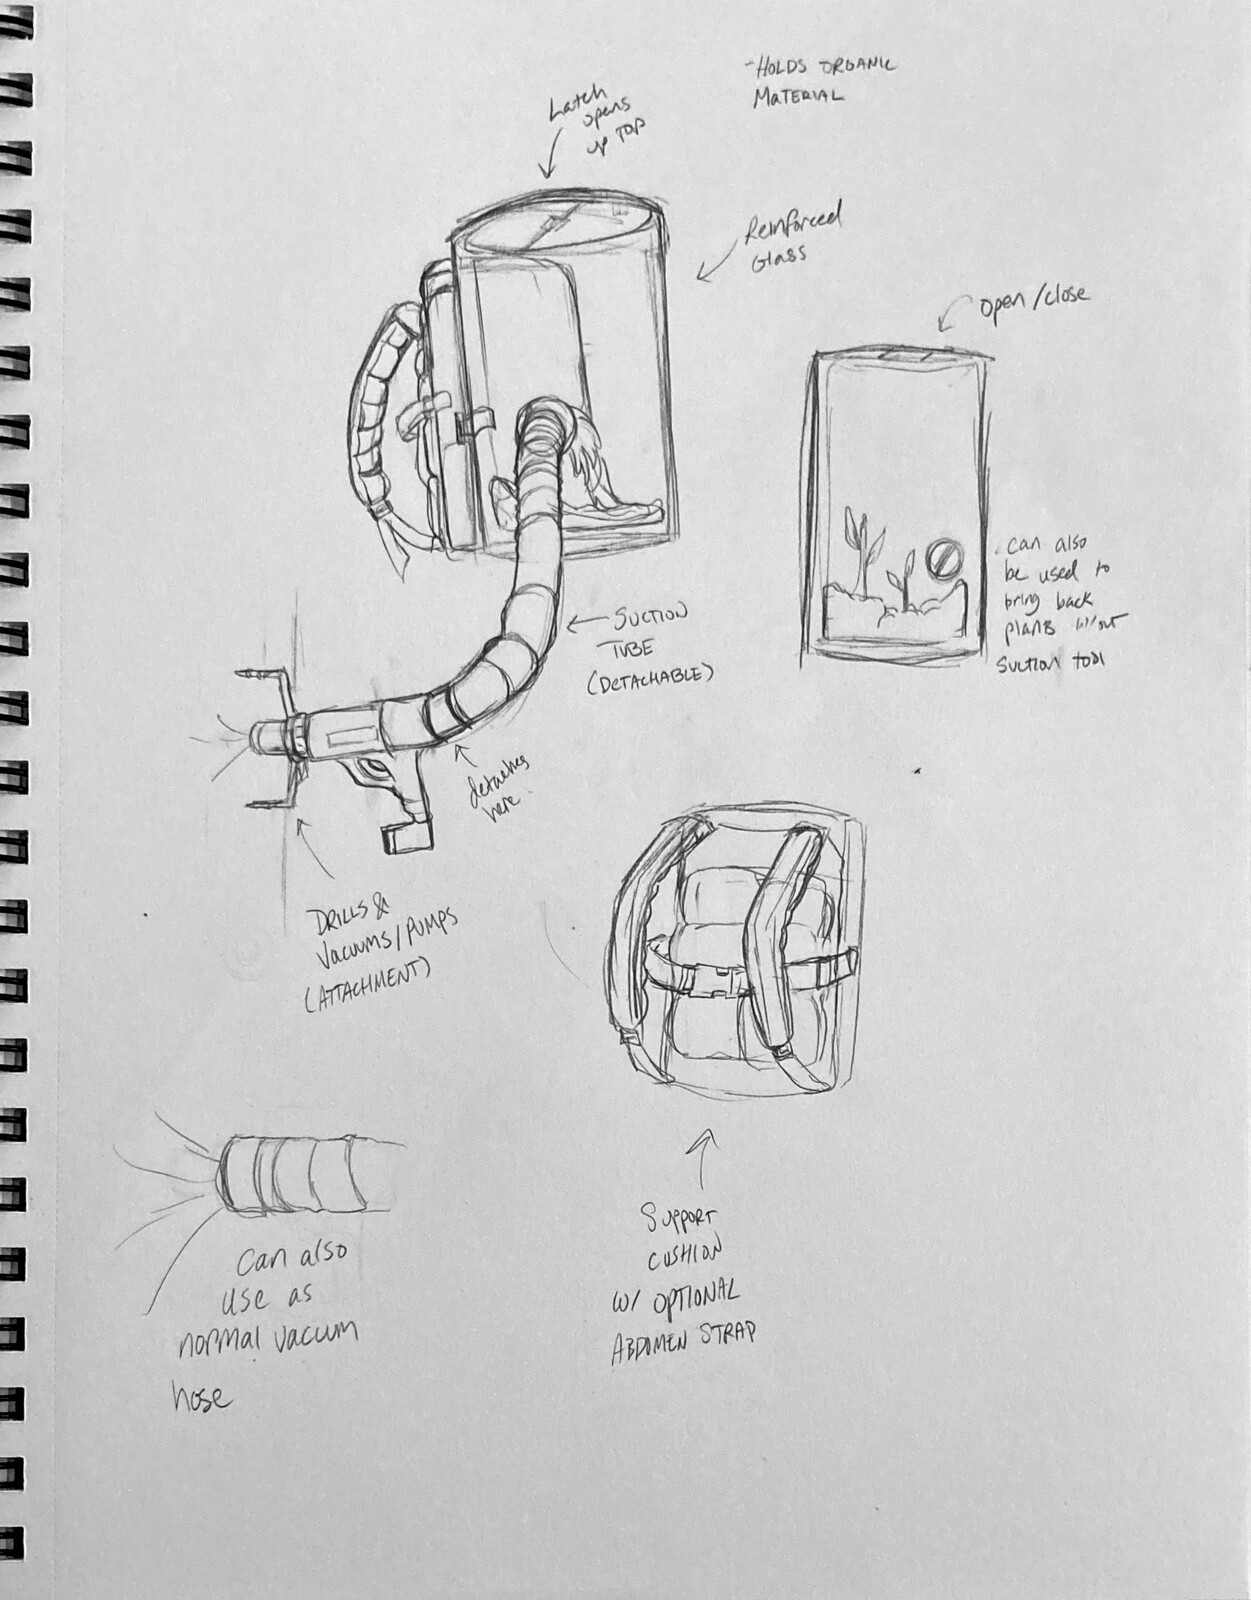 -HOLDS ORGANIC
MATERIAL
Latch
opens
up TOP
Reinforced
Glass
open/close
can also
be used to
bring back
plants w/out
SUCTION TOOl
SUCTION
TUBE
(DETACHABLE)
detaches
here.
DRILLS &
VACUUMS/PUMPS
(ATTACHMENT)
Can also
use as
normal vacuum
hose
SUPPORT
CUSHION
W/ OPTIONAL
ABDOMEN STRAP